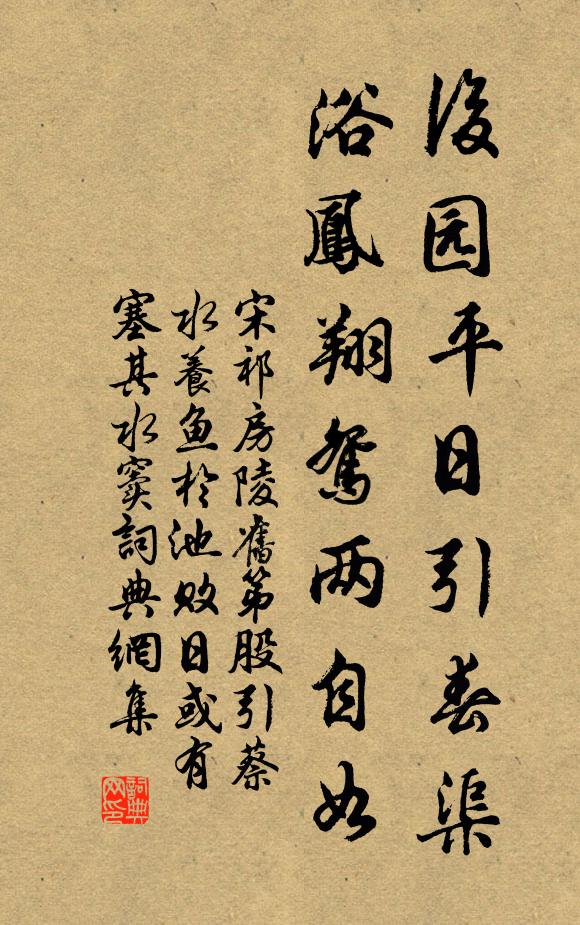 後园平日引春渠
浴鳳翔鴛两自如
宋祁房陵舊第股引蔡
水養鱼於池败日或有
塞其水窦詞典網集
詞典
网印